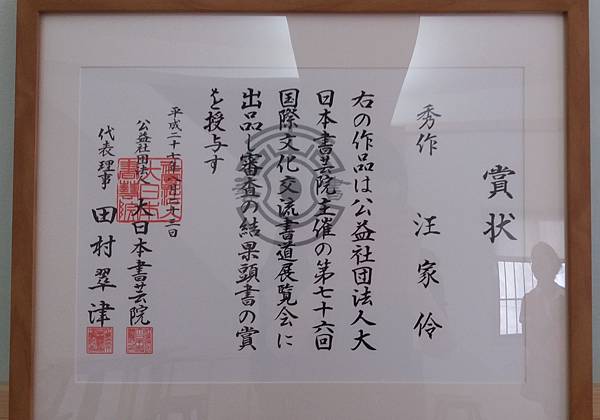 賞状
秀作 汪家伶
右の作品は公益社団法人大
日本書芸院主催の第七十六回
国際文化交流書道展覧会に
出品し審査の結果頭書の賞
を授与す
平成二十七年八月二十二日
公益社団法人 大日本書芸院
代表理事 田村翠津